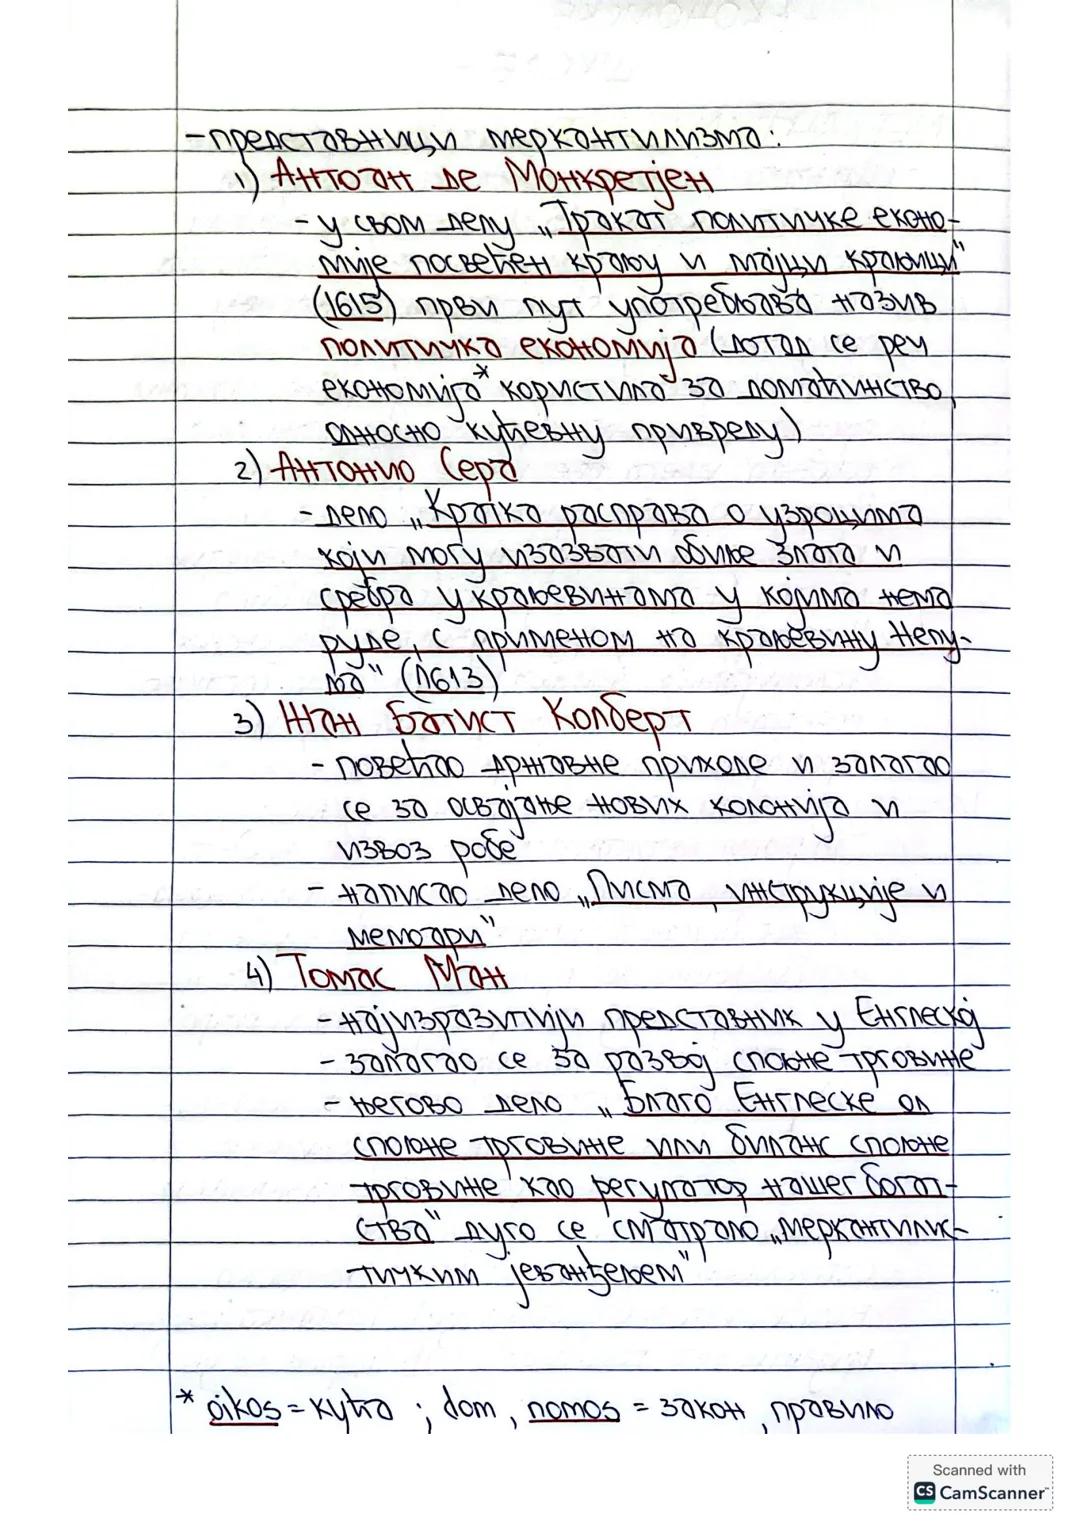 - представници меркантилизма:
1) Антоан де Монкретјен
- у свом делу „Тракат политичке еконо-
мије посвећен краљу и мајци краљици"
(1615) први пут употребљава назив
политичка економија (дотад се реч
економија* користила за домаћинство,
односно кућевну привреду)
2) Антонио Сера
- дело „Кратка расправа о узроцима
који могу изазвати обиље злата и
сребра у краљевинама у којима нема
руде, с применом на краљевину Напу-
ља" (1613)
3) Жан Батист Колберт
- повећао државне приходе и залагао
се за освајање нових колонија и
извоз робе
- написао дело „Писма, инструкције и
мемоари"
4) Томас Ман
- најизразитији представник у Енглеској
- залагао се за развој спољне трговине
- његово дело „Благо Енглеске од
спољне трговине или биланс спољне
трговине као регулатор нашег богат-
ства" дуго се сматрало „меркантилис-
тичким јеванђељем"
* oikos = кућа ; dom, nomos = закон, правило
Scanned with
CS CamScanner